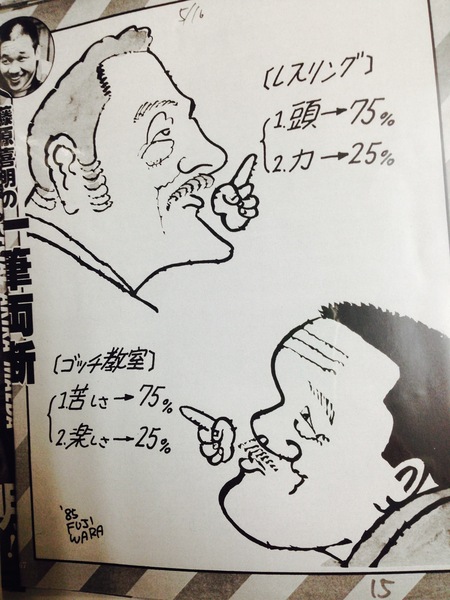 5/16
[レスリング]
1.頭→75%
2.力→25%
藤原喜明の
一筆両断
[ゴッチ教室]
1.苦しさ→75%
2.楽しさ→25%
'85
FUJI
WARA
15